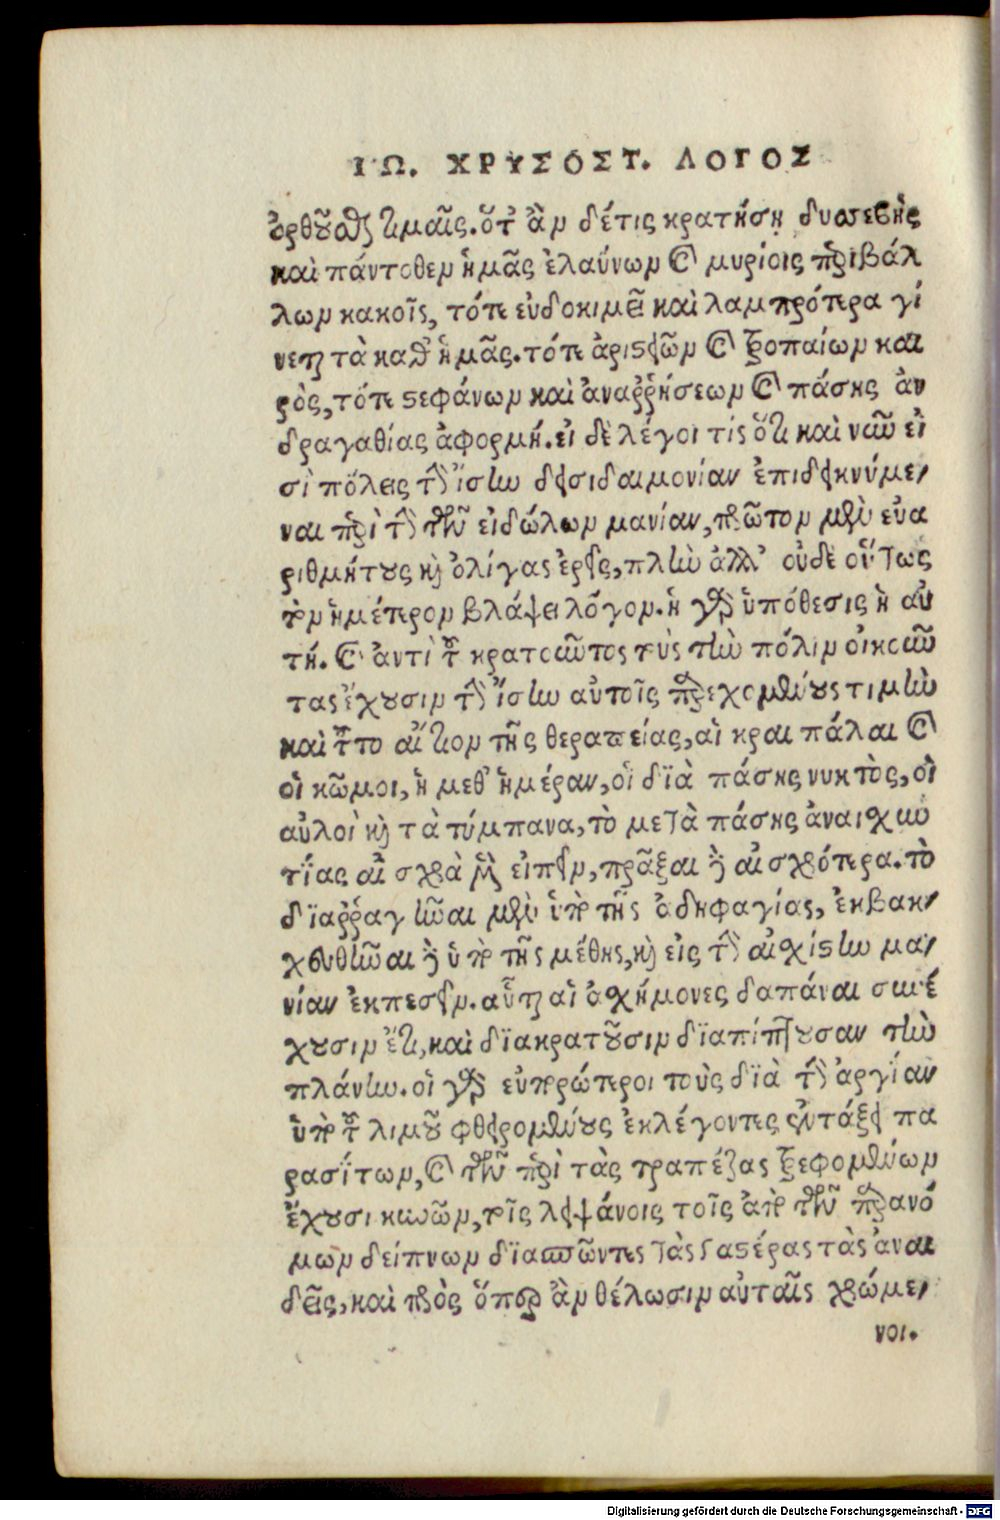 ΙΩ. ΧΡΥΣΟΣΤ. ΛΟΓΟΣ
ὀρθοῦσθαι τιμαῖς. ὅτ' ἂν δέτις κρατήσῃ δυσσεβὴς
καὶ πάντοθεν ἡμᾶς ἐλαύνων καὶ μυρίοις περιβάλ
λων κακοῖς, τότε εὐδοκιμεῖ καὶ λαμπρότερα γί
νεται τὰ καθ' ἡμᾶς. τότε ἀριστείων καὶ τροπαίων και
ρὸς, τότε στεφάνων καὶ ἀναῤῥήσεων καὶ πάσης ἀν
δραγαθίας ἀφορμή. εἰ δὲ λέγοι τίς ὅτι καὶ νῦν εἰ
σὶ πόλεις τὴν ἴσην δεισιδαιμονίαν ἐπιδεικνύμε-
ναι περὶ τὴν τῶν εἰδώλων μανίαν, πρῶτον μὲν εὐα
ριθμήτους καὶ ὀλίγας ἐρεῖς, πλὴν ἀλλ' οὐδὲ οὕτως
τὸν ἡμέτερον βλάψει λόγον. ἡ γὰρ ὑπόθεσις ἡ αὐ
τή. καὶ ἀντὶ τοῦ κρατοῦντος τοὺς τὴν πόλιν οἰκοῦν
τας ἔχουσιν τὴν ἴσην αὐτοῖς παρεχομένους τιμὴν
καὶ τοῦτο αἴτιον τῆς θεραπείας, αἱ κραι πάλαι καὶ
οἱ κῶμοι, ἡ μεθ' ἡμέραν, οἱ διὰ πάσης νυκτὸς, οἱ
αὐλοὶ καὶ τὰ τύμπανα, τὸ μετὰ πάσης ἀναισχυν
τίας αἰσχρὰ μὲν εἰπεῖν, πρᾶξαι δὲ αἰσχρότερα. τὸ
διαῤῥαγῆναι μὲν ὑπὸ τῆς ἀδηφαγίας, ἐκβακ-
χευθῆναι δὲ ὑπὸ τῆς μέθης, καὶ εἰς τὴν αἰσχίστην μα-
νίαν ἐκπεσεῖν. αὗται αἱ ἀσχήμονες δαπάναι συνέ
χουσιν ἔτι, καὶ διακρατοῦσιν διαπίπτουσαν τὴν
πλάνην. οἱ γὰρ εὐπορώτεροι τοὺς διὰ τὴν ἀργίαν
ὑπὸ τοῦ λιμοῦ φθειρομένους ἐκλέγοντες ἐν τάξει πα
ρασίτων, καὶ τῶν περὶ τὰς τραπέζας τρεφομένων
ἔχουσι κυνῶν, τοῖς λειψάνοις τοῖς ἀπὸ τῶν παρανό
μων δείπνων διασπῶντες τὰς γαστέρας τὰς ἀναι
δεῖς, καὶ πρὸς ὅπερ ἂν θέλωσιν αὐταῖς χρώμε-
νοι.
Digitalisierung gefördert durch die Deutsche Forschungsgemeinschaft - DFG